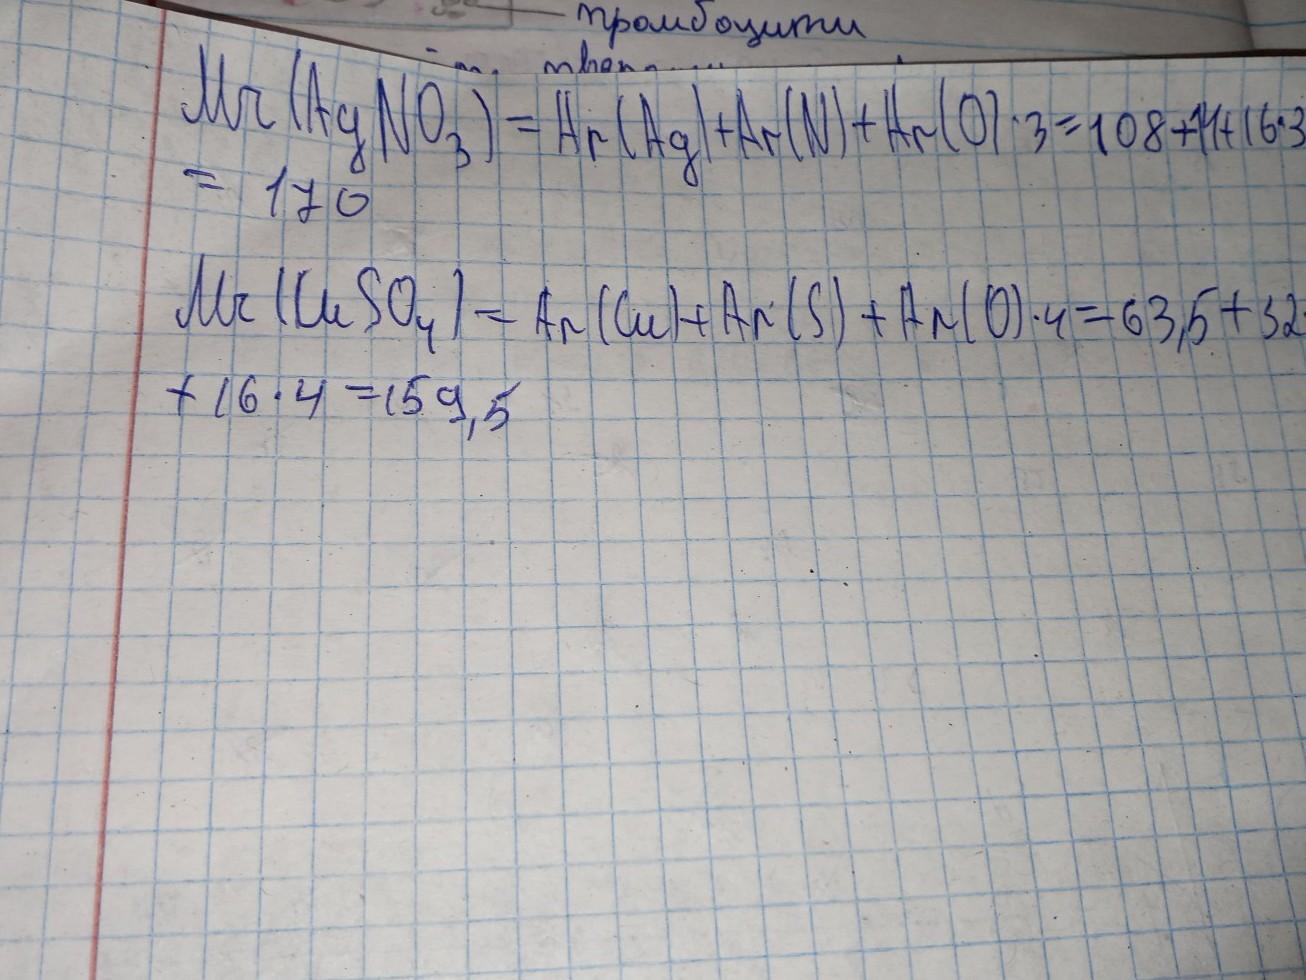 тромбоцити
Mr(AgNO₃)=Ar(Ag)+Ar(N)+Ar(O)·3=108+14+16·3
= 170
Mr(CuSO₄)=Ar(Cu)+Ar(S)+Ar(O)·4=63,5+32
+16·4=159,5